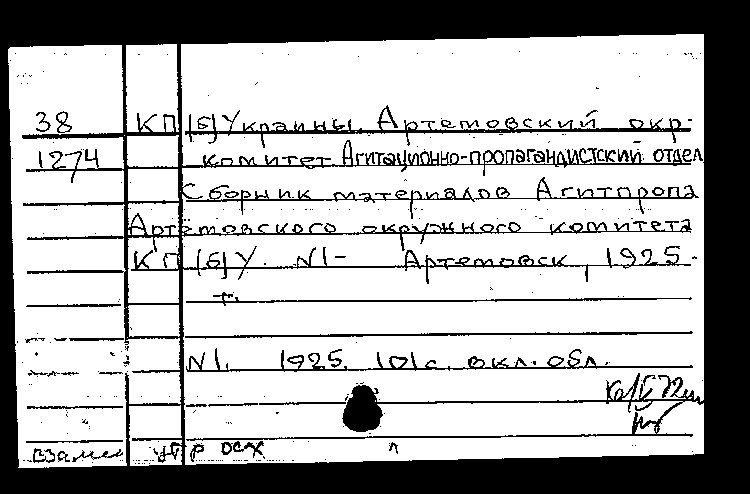 38 КП(б)Украины. Артемовский окр.
1274 комитет Агитационно-пропагандистский отдел
Сборник материалов Агитпропа
Артемовского окружного комитета
КП(б)У. N1- Артемовск, 1925-
т.
N1. 1925. 101с. вкл. обл.
взамен